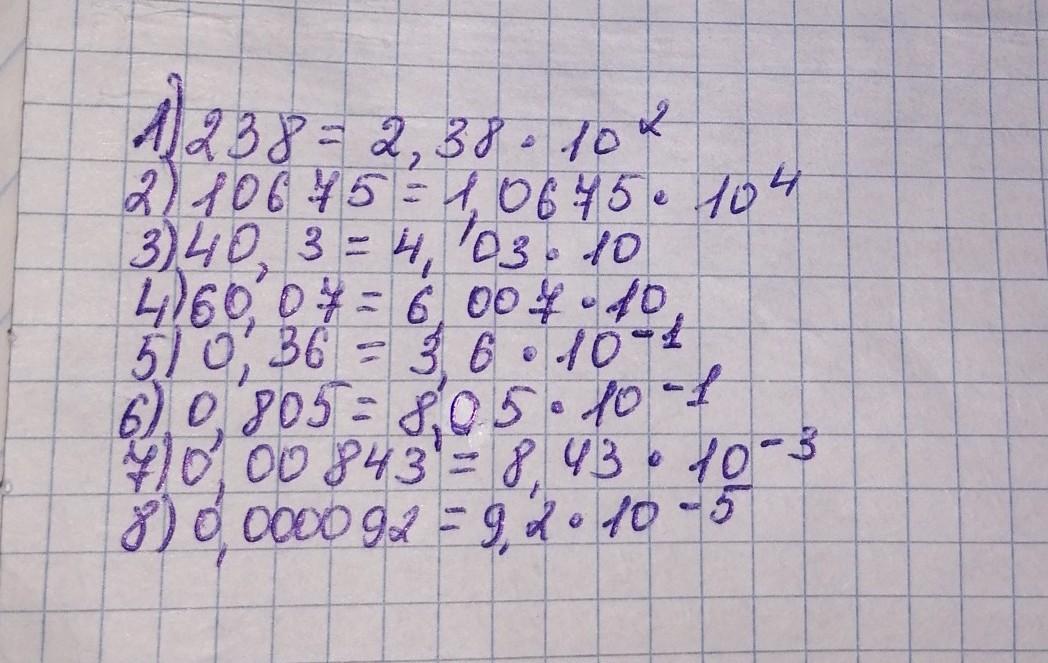 1) 238 = 2,38 · 10²
2) 10675 = 1,0675 · 10⁴
3) 40,3 = 4,03 · 10
4) 60,07 = 6,007 · 10
5) 0,36 = 3,6 · 10⁻¹
6) 0,805 = 8,05 · 10⁻¹
7) 0,00843 = 8,43 · 10⁻³
8) 0,000092 = 9,2 · 10⁻⁵